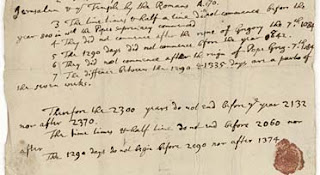 Jerusalem & of Temple by the Romans A.70.
3 The time times & half a time did not commence before the
year 800 in wch the Popes supremacy commenced
4 They did not commence after the of Gregory the 7th. 1084
5 The 1290 days did not commence before the year 842.
6 They did not commence after the reign of Pope Greg. 7th. 1084
7 The diffence between the 1290 & 1335 days are a parts of
the seven weeks.
Therefore the 2300 years do not end before ye year 2132
nor after 2370.
The time times & half time do not end before 2060 nor
after
The 1290 days do not before 2090 nor after 1374